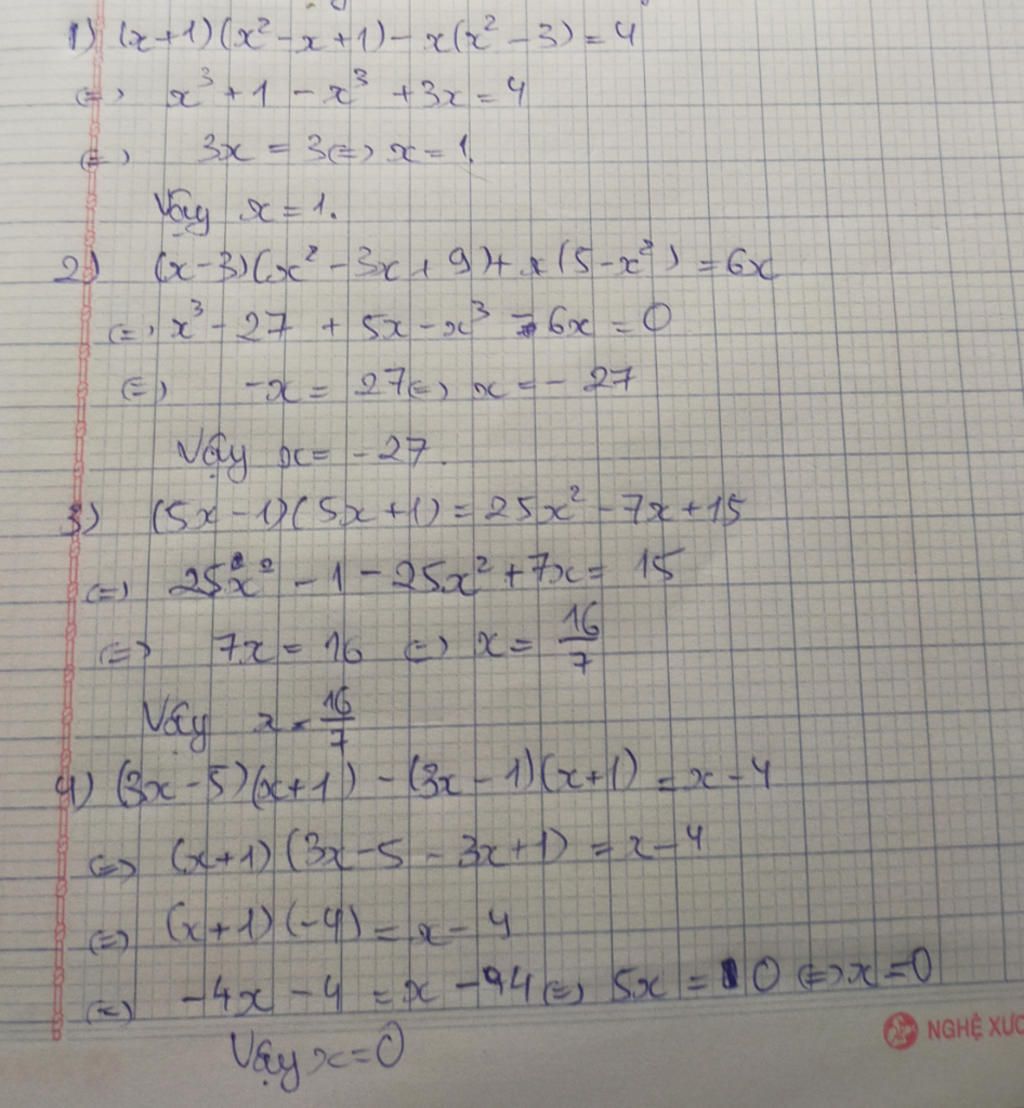 1) (x+1)(x² - x + 1) - x(x² - 3) = 4
(=) x³ + 1 - x³ + 3x = 4
(=) 3x = 3 (=) x = 1
Vậy x = 1.
2) (x-3)(x² - 3x + 9) + x(5 - x²) = 6x
(=) x³ - 27 + 5x - x³ - 6x = 0
(=) -x = 27 (=) x = - 27
Vậy x = - 27.
3) (5x - 1)(5x + 1) = 25x² - 7x + 15
(=) 25x² - 1 - 25x² + 7x = 15
(=) 7x = 16 (=) x = 16/7
Vậy x = 16/7
4) (3x - 5)(x+1) - (3x - 1)(x+1) = x - 4
(=) (x+1)(3x - 5 - 3x + 1) = x - 4
(=) (x+1)(-4) = x - 4
(=) -4x - 4 = x - 4 (=) 5x = 0 (=) x = 0
NGHỆ XƯC
Vậy x = 0